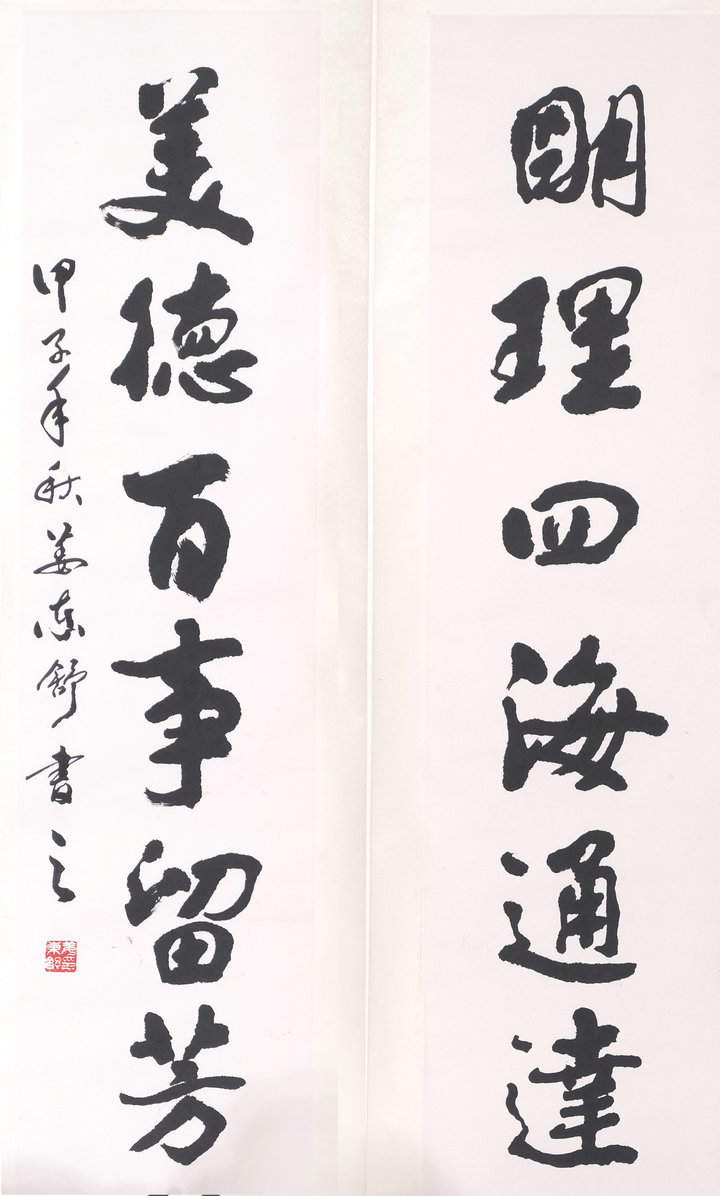 明理四海通達
美德百事留芳
甲子年秋姜東舒書之